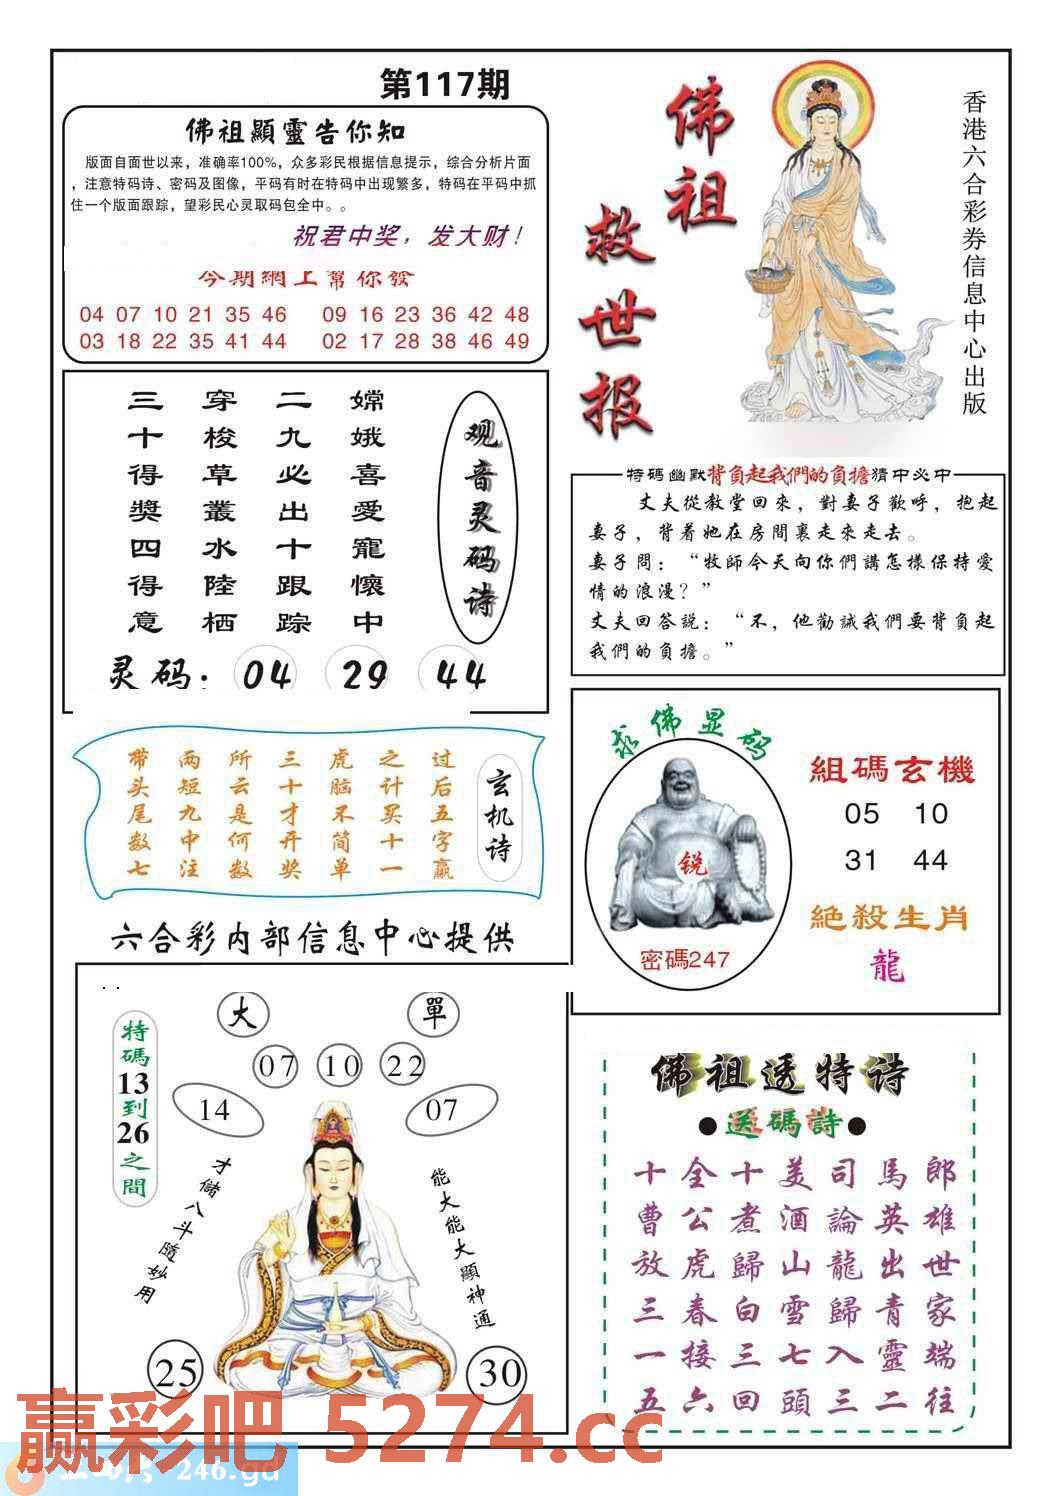 第117期
佛祖顯靈告你知
版面自面世以来，准确率100%，众多彩民根据信息提示，综合分析片面
，注意特码诗、密码及图像，平码有时在特码中出现繁多，特码在平码中抓
住一个版面跟踪，望彩民心灵取码包全中。。
祝君中奖，发大财！
今期網上幫你發
04 07 10 21 35 46 09 16 23 36 42 48
03 18 22 35 41 44 02 17 28 38 46 49
佛祖
救世报
香港六合彩券信息中心出版
观音灵码诗
嫦娥喜愛寵懷中
二九必出十跟踪
穿梭草叢水陸栖
三十得獎四得意
灵码：04 29 44
特碼幽默背負起我們的負擔猜中必中
丈夫從教堂回來，對妻子歡呼，抱起
妻子，背着她在房間裏走來走去。
妻子問：“牧師今天向你們講怎樣保持愛
情的浪漫？”
丈夫回答説：“不，他勸誡我們要背負起
我們的負擔。”
玄机诗
过后五字赢
之计买十一
虎脑不简单
三十才开奖
所云是何数
两短九中注
带头尾数七
求佛显码
锐
密碼247
組碼玄機
05 10
31 44
絕殺生肖
龍
六合彩内部信息中心提供
特碼13到26之間
大
單
07 10 22
14
07
才儲八斗隨妙用
能大能大顯神通
25
30
佛祖透特诗
●送碼詩●
十全十美司馬郎
曹公煮酒論英雄
放虎歸山龍出世
三春白雪歸青家
一接三七入靈端
五六回頭三二往
赢彩吧 5274.cc
246.gd